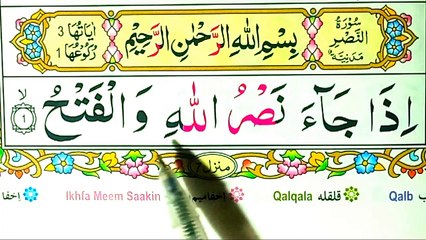 سُوْرَةُ النَّصْرِ مَدَنِيَّةٌ
بِسْمِ اللهِ الرَّحْمٰنِ الرَّحِيْمِ
اٰيَاتُهَا 3
رُكُوْعُهَا 1
اِذَا جَآءَ نَصْرُ اللهِ وَالْفَتْحُ ۙ 1
منزل
Ikhfa Meem Saakin اخفا میم Qalqala قلقله Qalb قلب